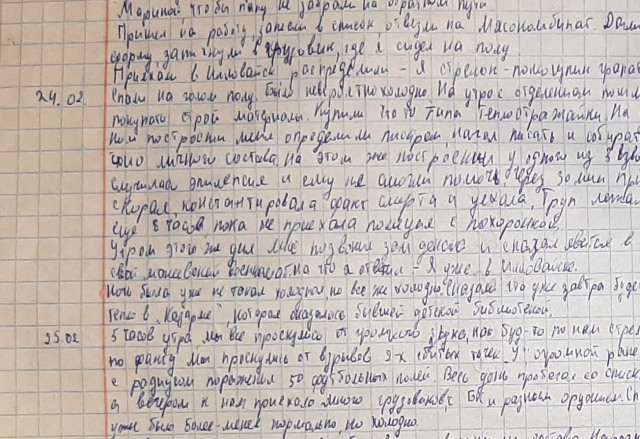 Мариной чтобы папу не забрали на обратном пути
Пришел на работу, записали в список отвезли на Мясокомбинат. Дали
форму, запихнули в грузовик, где я сидел на полу
Приехали в Иловайск распределили - я стрелок-помощник гранат
24.02. спали на голом полу. Было невероятно холодно. На утро с отделением пошли
покупать строй материалы. Купили что то типа Теплоотражайки. На
ном построении меня определили писарем, начал писать и собирать
личного состава. На этом же построении у одного из 3 взво
случилась эпилепсия и ему не смогли помочь. Через 30 мин при
скорая, констатировала факт смерти и уехала. Труп лежал
еще 8 часов пока не приехала полиция с похоронкой.
Утром этого же дня мне позвонил зам декана и сказал явится в
свой военкомат на что я ответил - Я уже в Иловайске.
Ночь была уже не такая холодная но все же холодно. Сказали что уже завтра буде
тепло в "Казарме" которая оказалась бывшей детской библиотекой.
25.02 5 часов утра мы все проснулись от громкого звука, как буд-то по нам стрел
по факту мы проснулись от взрывов 2-х точек У. огромной раке
с радиусом поражения 50 футбольных полей. Весь день пробегал со списк
а, вечером к нам приехало много грузовиков с БК и разным оружием. Сп
уже было более-менее нормально, но холодно.